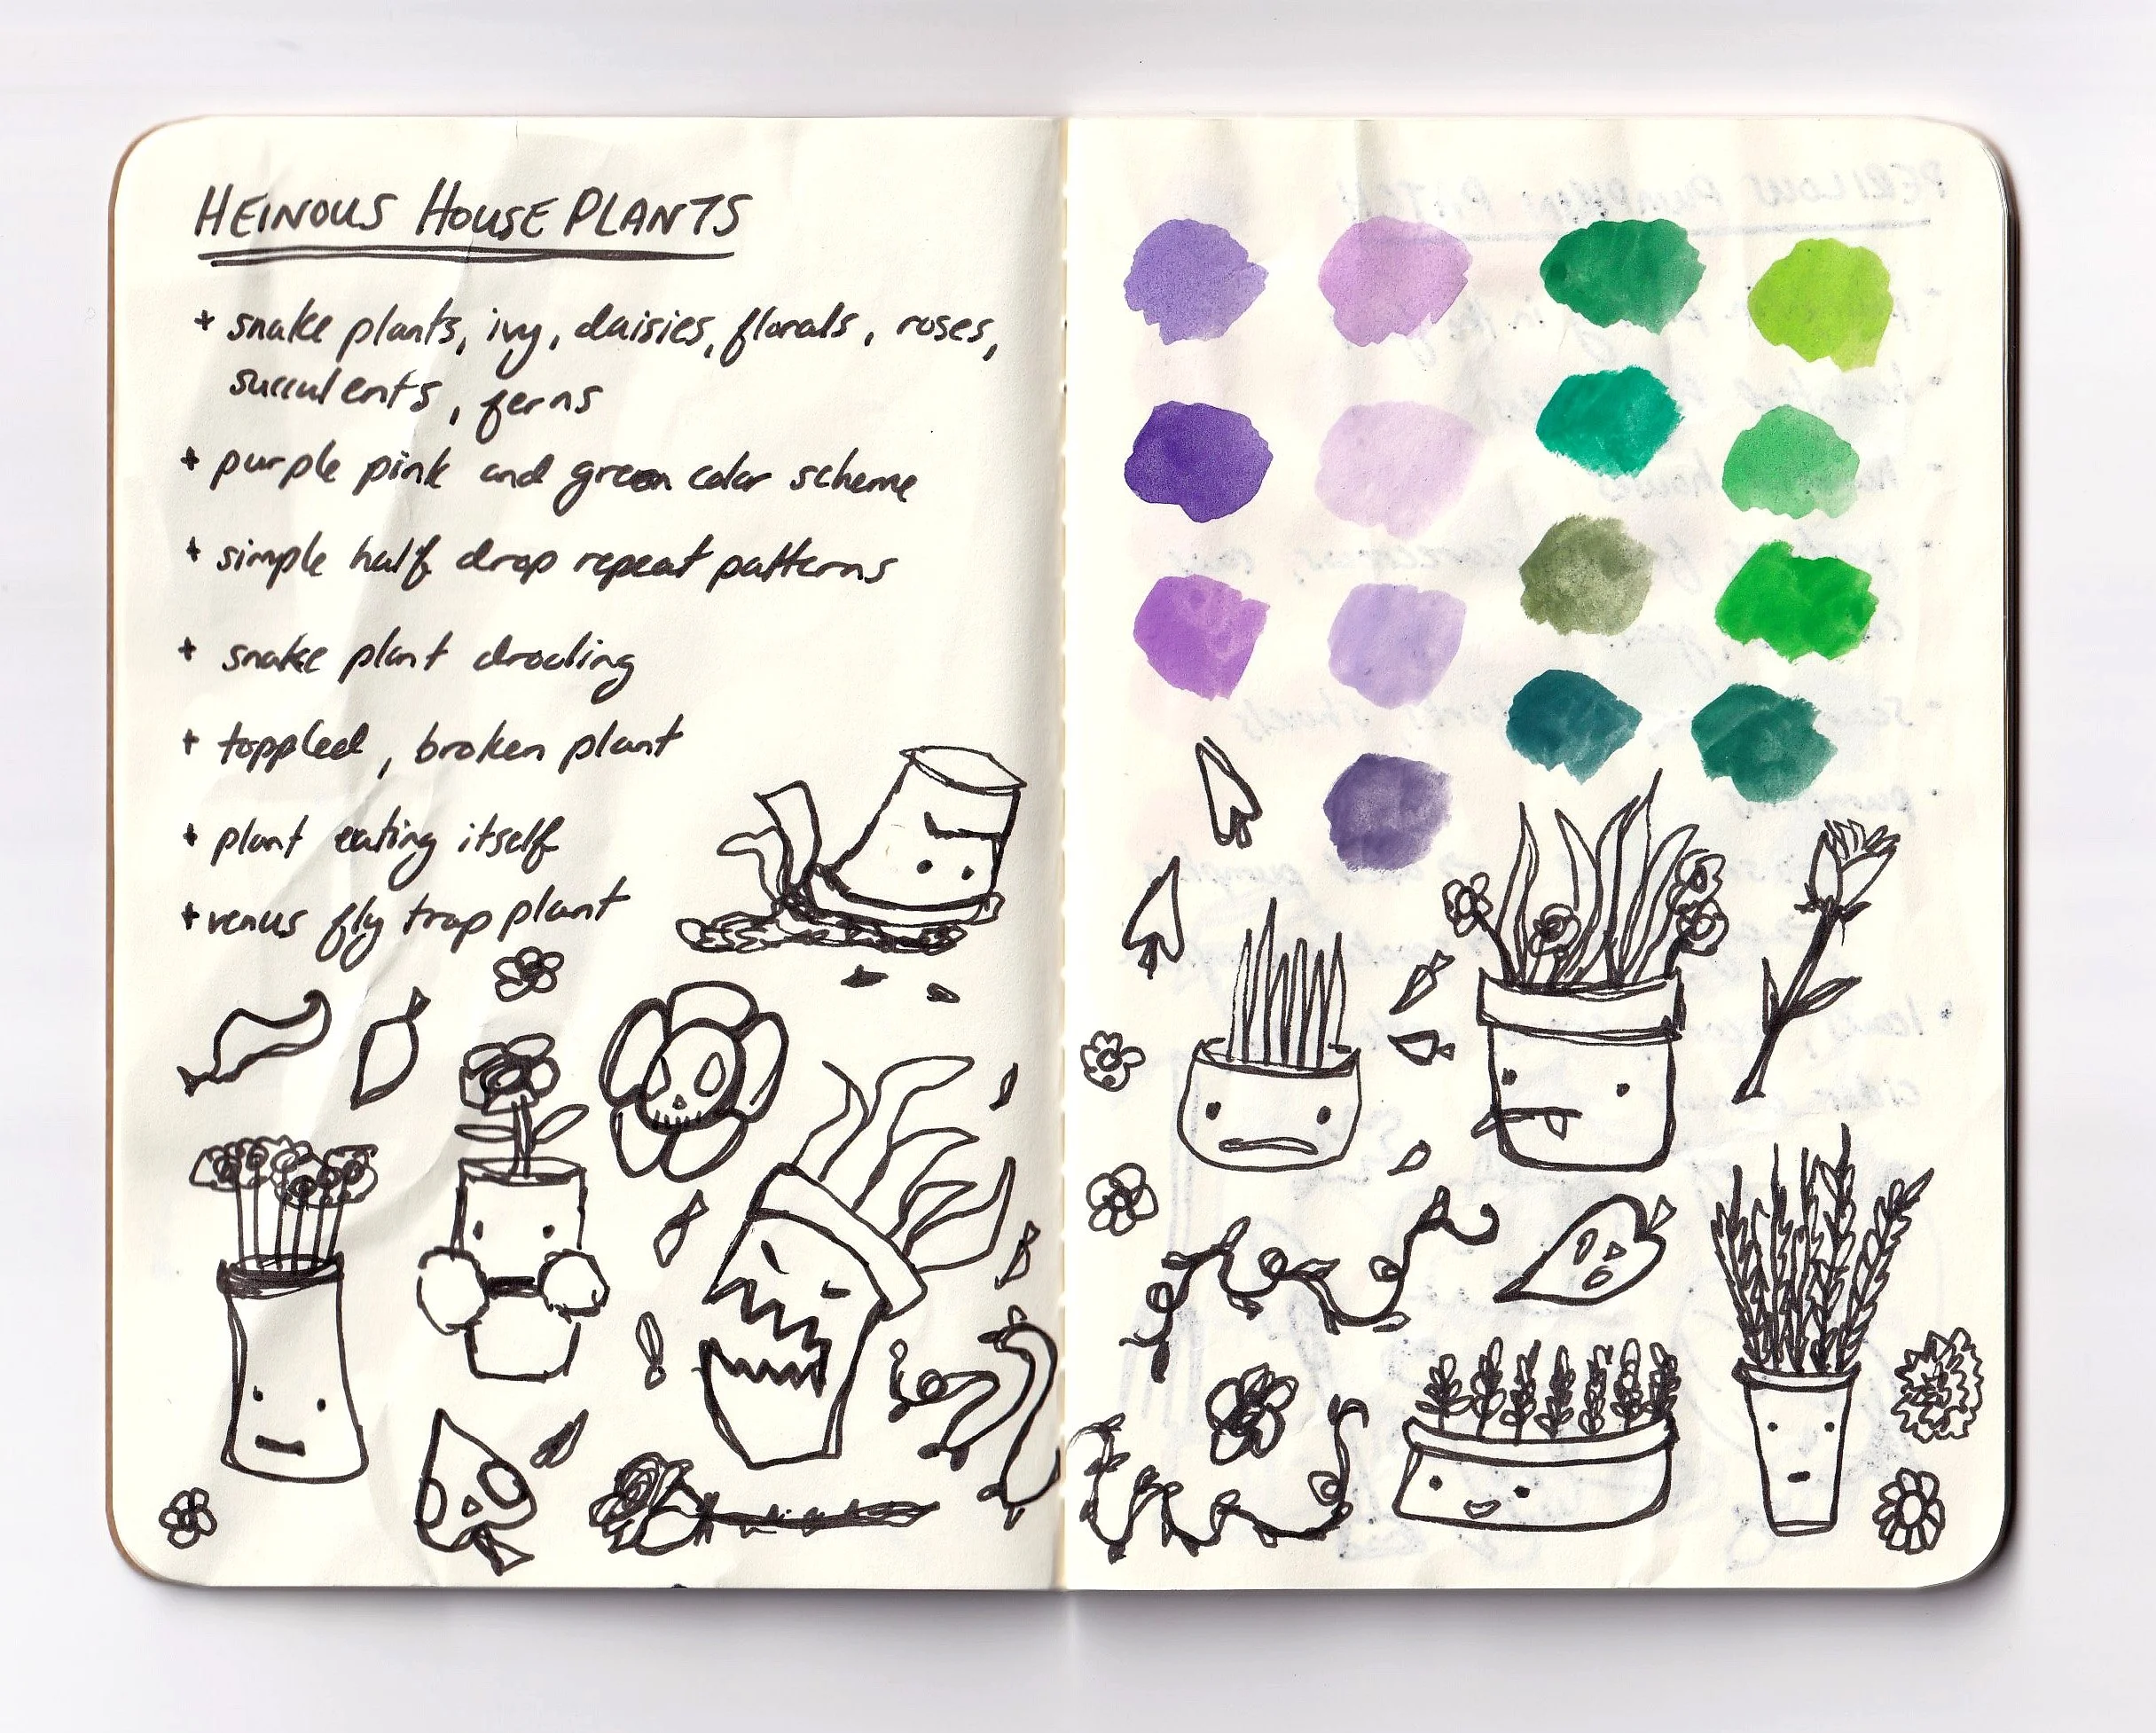 HEINOUS HOUSE PLANTS
+ snake plants, ivy, daisies, florals, roses,
succulents, ferns
+ purple pink and green color scheme
+ simple half drop repeat patterns
+ snake plant drooling
+ toppled, broken plant
+ plant eating itself
+ venus fly trap plant